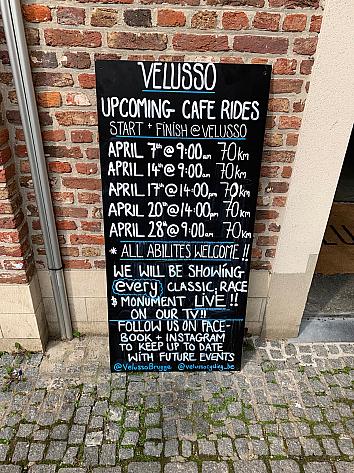 VELUSSO
UPCOMING CAFE RIDES
START + FINISH @ VELUSSO
APRIL 7th @ 9:00am 70KM
APRIL 14th @ 9:00am 70KM
APRIL 17th @ 14:00pm 70KM
APRIL 20th @ 14:00pm 70KM
APRIL 28th @ 9:00am 70KM
* ALL ABILITES WELCOME !!
WE WILL BE SHOWING
every CLASSIC, RACE
$ MONUMENT LIVE !!
ON OUR TV!!
FOLLOW US ON FACE-
BOOK + INSTAGRAM
TO KEEP UP TO DATE
WITH FUTURE EVENTS
@VelussoBrugge @velussocycling_be